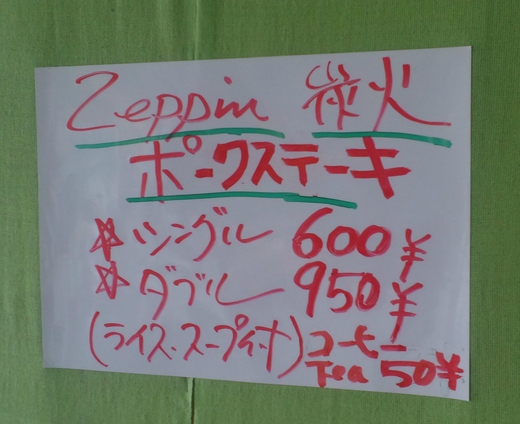 Zeppin 炭火
ポークステーキ
☆シングル 600¥
☆ダブル 950¥
(ライス・スープ付) コーヒー
Tea 50¥